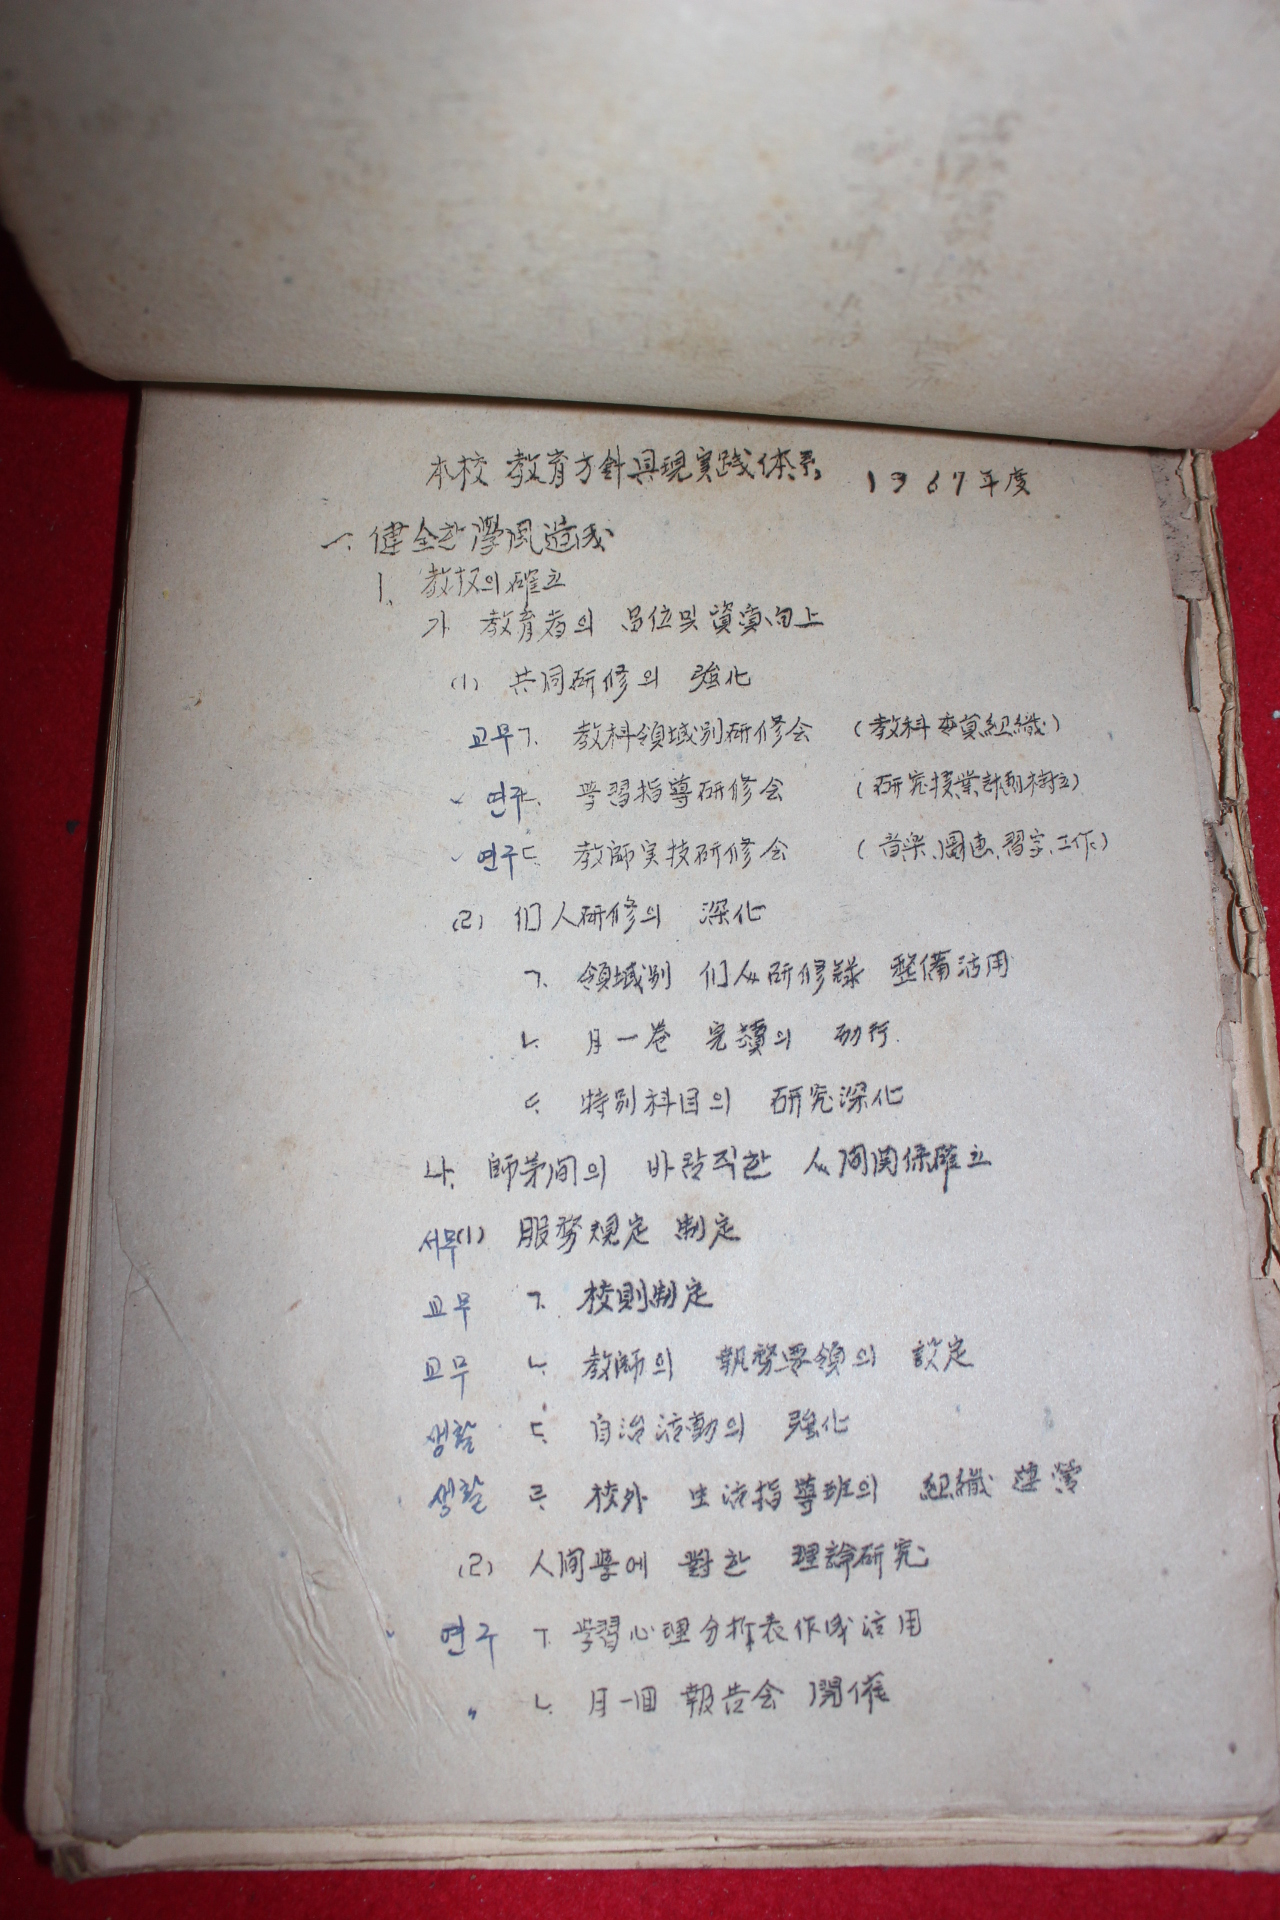 本校 教育方針具現実践体系 1967年度
一. 健全한 學風造成
1. 教权의 確立
가. 教育者의 品位 및 資質向上
(1) 共同研修의 強化
교무 ㄱ. 教科領域別研修会 (教科委員組織)
연구 ㄴ. 学習指導研修会 (研究授業計画樹立)
연구 ㄷ. 教師実技研修会 (音楽、図画、習字、工作)
(2) 们人研修의 深化
ㄱ. 領域別 们人研修録 整備活用
ㄴ. 月一巻 完讀의 励行
ㄷ. 特別科目의 研究深化
나. 師弟间의 바람직한 人间関係確立
서무 (1) 服務規定 制定
교무 ㄱ. 校則制定
교무 ㄴ. 教師의 執務要領의 設定
생활 ㄷ. 自治活動의 強化
생활 ㄹ. 校外 生活指導班의 組織 運営
(2) 人间学에 對한 理論研究
연구 ㄱ. 学習心理分析表作成活用
〃 ㄴ. 月一回 報告会 開催